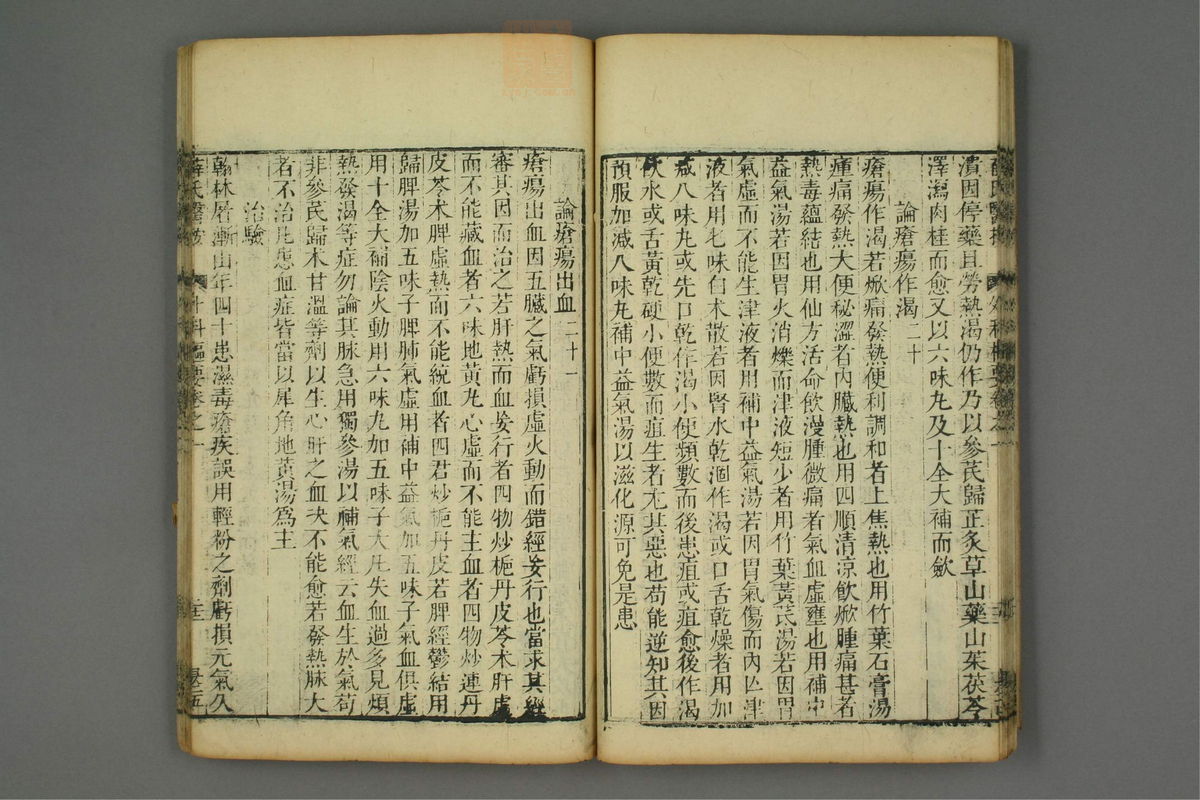 潰因停藥且勞熱渴仍作乃以參芪歸芷炙草山藥山茱茯苓
澤瀉肉桂而愈又以六味丸及十全大補而斂
論瘡瘍作渴二十
瘡瘍作渴若焮痛發熱便利調和者上焦熱也用竹葉石膏湯
腫痛發熱大便秘澀者内臟熱也用四順清凉飲焮腫痛甚者
熱毒蘊結也用仙方活命飲漫腫微痛者氣血虛壅也用補中
益氣湯若因胃火消爍而津液短少者用竹葉黃芪湯若因胃
氣虛而不能生津液者用補中益氣湯若因胃氣傷而内亡津
液者用七味白术散若因腎水乾涸作渴或口舌乾燥者用加
减八味丸或先口乾作渴小便頻數而後患疽或疽愈後作渴
飲水或舌黃乾硬小便數而疽生者尤其惡也苟能逆知其因
預服加减八味丸補中益氣湯以滋化源可免是患
論瘡瘍出血二十一
瘡瘍出血因五臟之氣虧損虛火動而錯經妄行也當求其經
審其因而治之若肝熱而血妄行者四物炒梔丹皮苓术肝虛
而不能藏血者六味地黃丸心虛而不能主血者四物炒連丹
皮苓术脾虛熱而不能統血者四君炒梔丹皮若脾經鬱結用
歸脾湯加五味子脾肺氣虛用補中益氣加五味子氣血俱虛
用十全大補陰火動用六味丸加五味子大凡失血過多見煩
熱發渴等症勿論其脉急用獨參湯以補氣經云血生於氣苟
非參芪歸术甘溫等劑以生心肝之血决不能愈若發熱脉大
者不治凡患血症皆當以犀角地黃湯爲主
治驗
翰林屠漸山年四十患濕毒瘡疾誤用輕粉之劑虧損元氣久
薛氏醫按
外科樞要卷之一